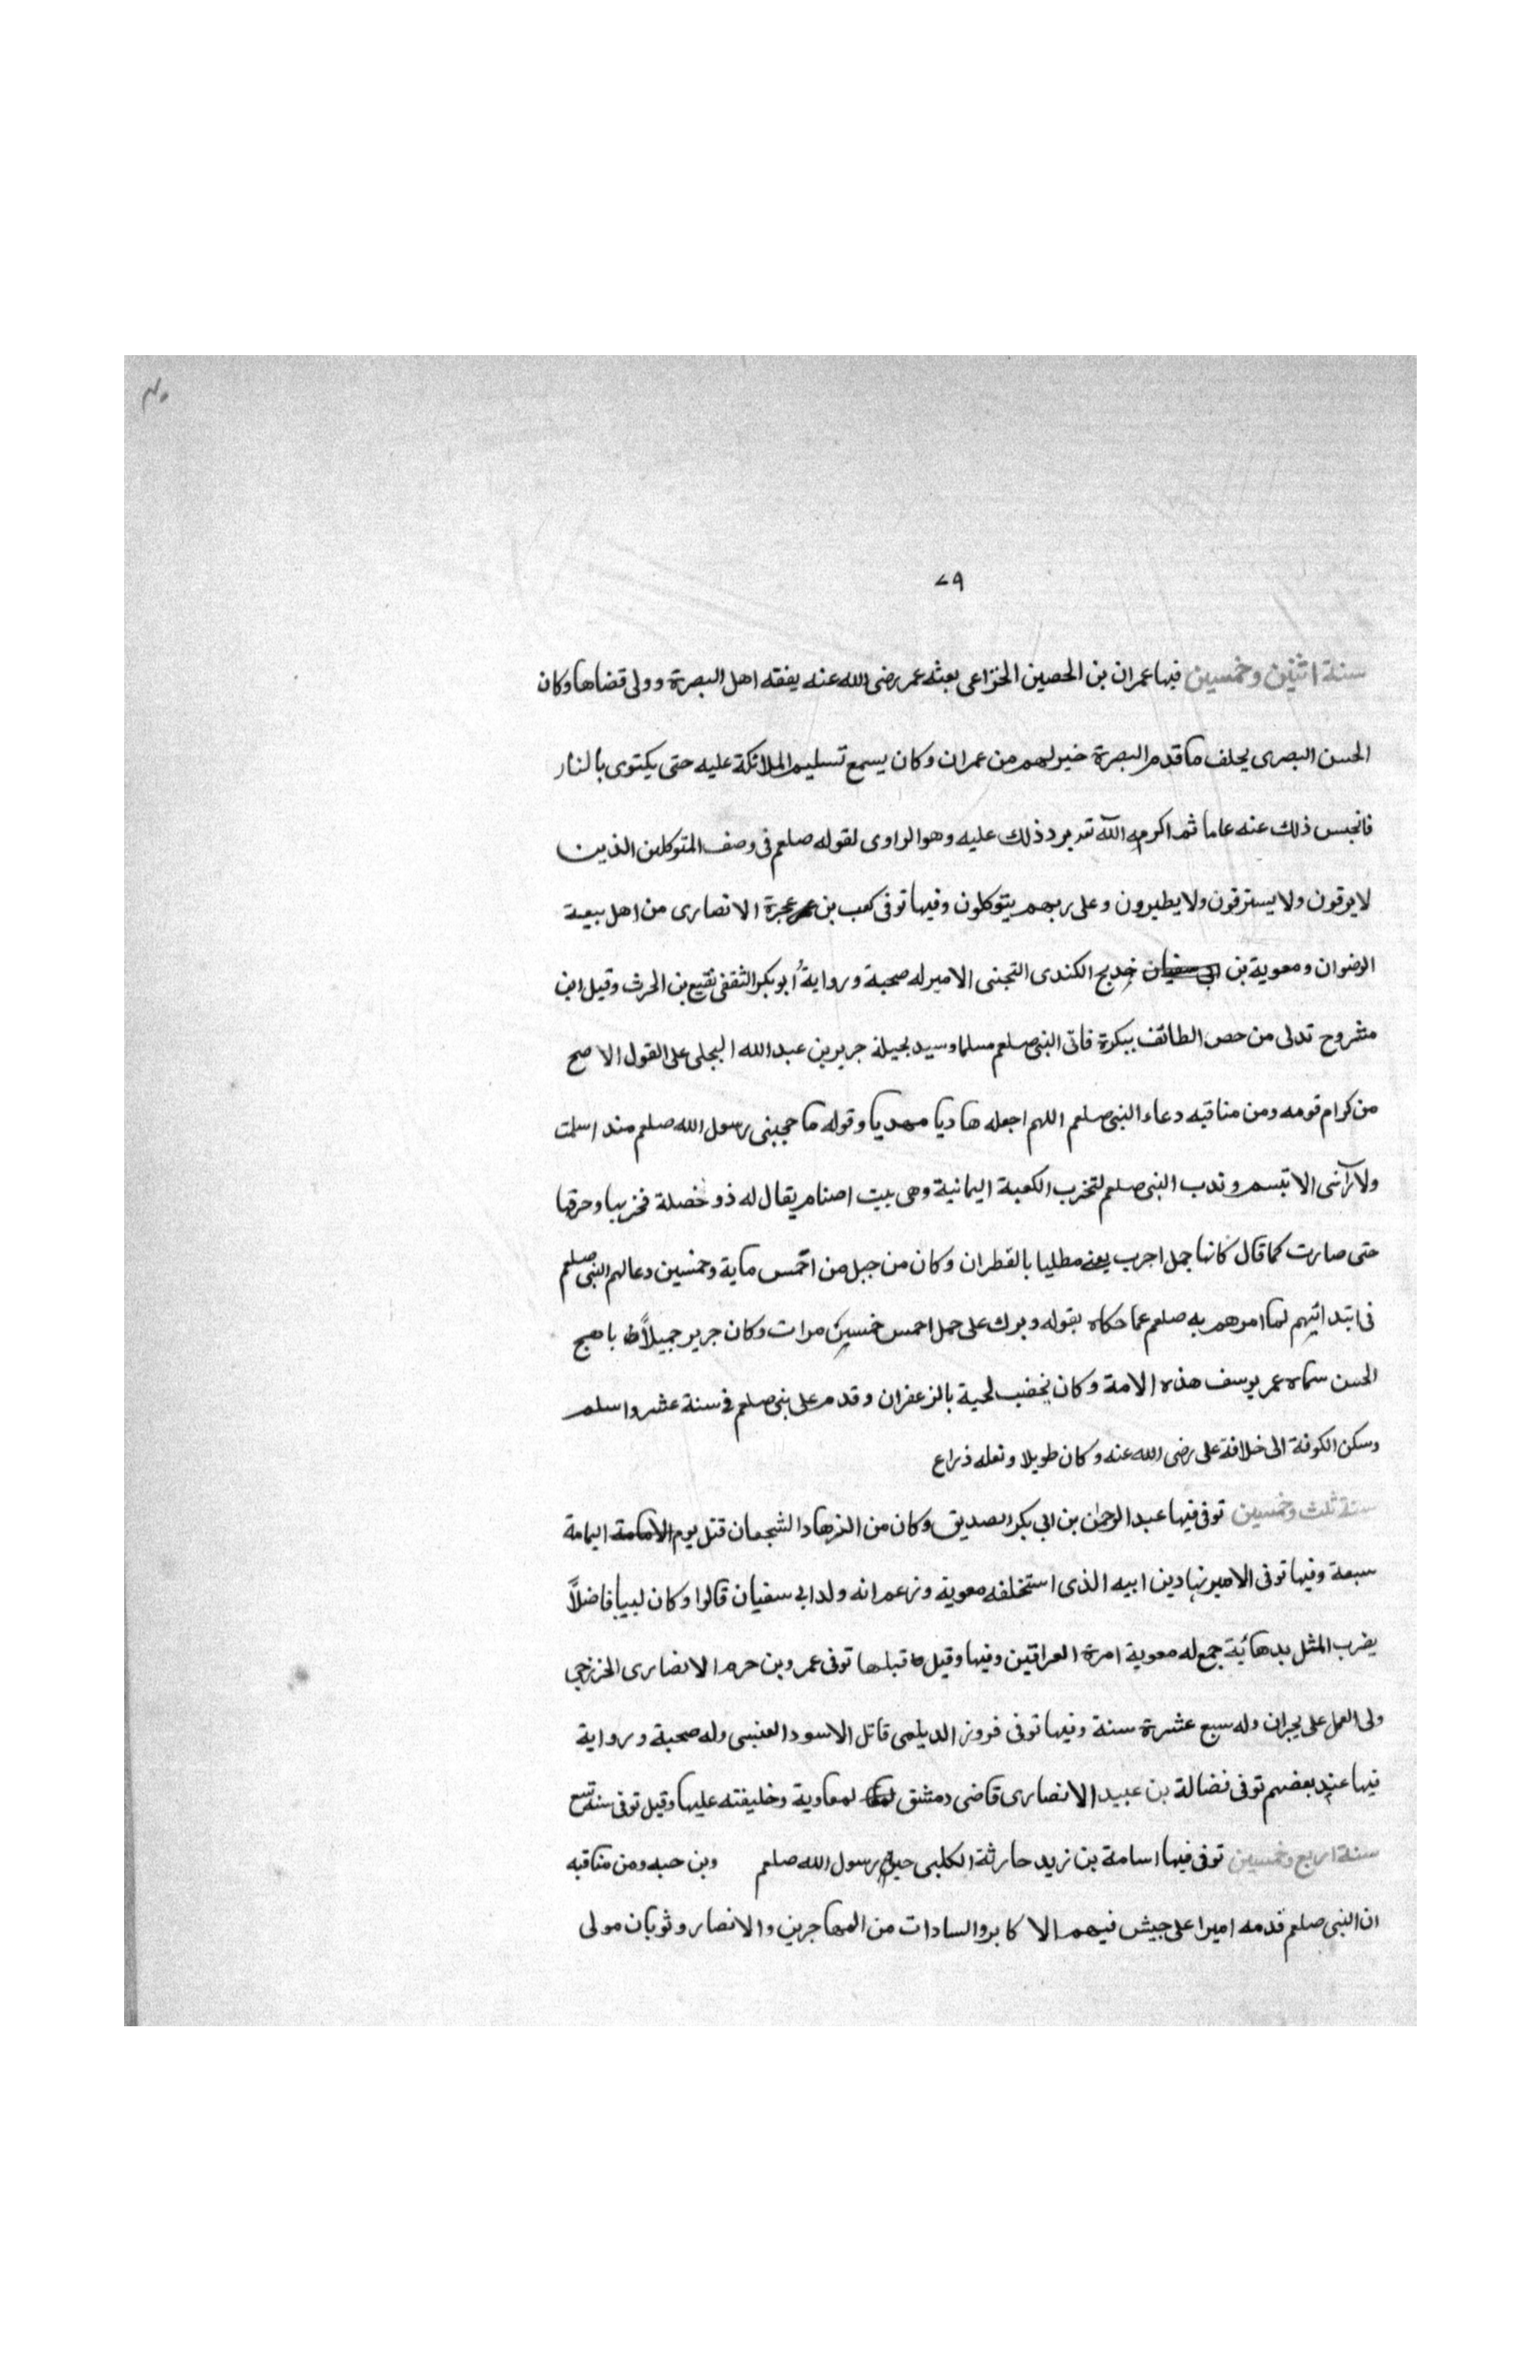 ٧٩
سنة اثنين وخمسين فيها عمران بن الحصين الخزاعى بعثه عمر رضى الله عنه يفقه اهل البصرة وولى قضاها وكان
الحسن البصرى يحلف ما قدم البصرة خير لهم من عمران وكان يسمع تسليم الملائكة عليه حتى يكتوى بالنار
فانحبس ذلك عنه عاما ثم اكرمه الله تع برد ذلك عليه وهو الراوى لقوله صلعم فى وصف المتوكلين الذين
لا يرقون ولا يسترقون ولا يطيرون وعلى ربهم يتوكلون وفيها توفى كعب بن عجرة الانصارى من اهل بيعة
الرضوان ومعوية بن خديج الكندى التجنى الامير له صحبة ورواية ابو بكر الثقفى نقيع بن الحرث وقيل ابن
مشروح تدلى من حصن الطائف ببكرة فاتى النبى صلعم مسلما وسيد بجيلة جرير بن عبد الله البجلى على القول الاصح
من كرام قومه ومن مناقبه دعاء النبى صلعم اللهم اجعله هاديا مهديا وقوله ما حجبنى رسول الله صلعم منذ اسلمت
ولا رآنى الا تبسم وندب النبى صلعم لتخرب الكعبة اليمانية وهى بيت اصنام يقال له ذو خصلة فخربها وحرقها
حتى صارت كما قال كانها جمل اجرب يعنى مطليا بالقطران وكان من جبل من احمس ماية وخمسين دعا لهم النبى صلعم
فى ابتدائهم لما امرهم به صلعم عما حكاه بقوله وبرك على حمل احمس خمسين مرات وكان جرير جميلاً باهج
الحسن سماه عمر يوسف هذه الامة وكان يخضب لحية بالزعفران وقدم على بنى صلعم فى سنة عشر واسلم
وسكن الكوفة الى خلافة على رضى الله عنه وكان طويلا ونعله ذراع
سنة ثلث وخمسين توفى فيها عبد الرحمن بن ابى بكر الصديق وكان من الزهاد الشجعان قتل يوم الامامة اليمامة
سبعة وفيها توفى الامير زيادين ابيه الذى استخلفه معوية وزعم انه ولد ابى سفيان قالوا وكان لبيبا فاضلاً
يضرب المثل بدهائية جمع له معوية امرة العراقين وفيها وقيل قبلها توفى عمرو بن حرم الانصارى الخزرجى
ولى العمل على نجران وله سبع عشرة سنة وفيها توفى فروز الديلمى قاتل الاسود العنبسى وله صحبة ورواية
فيها عند بعضهم توفى فضالة بن عبيد الانصارى قاضى دمشق لمعاوية وخليفته عليها وقيل توفى سنة تسع
سنة اربع وخمسين توفى فيها اسامة بن زيد حارثة الكلبى رسول الله صلعم وبن حبه ومن مناقبه
ان النبى صلعم قدمه اميرا على جيش فيهم الاكابر والسادات من المهاجرين والانصار وثوبان مولى